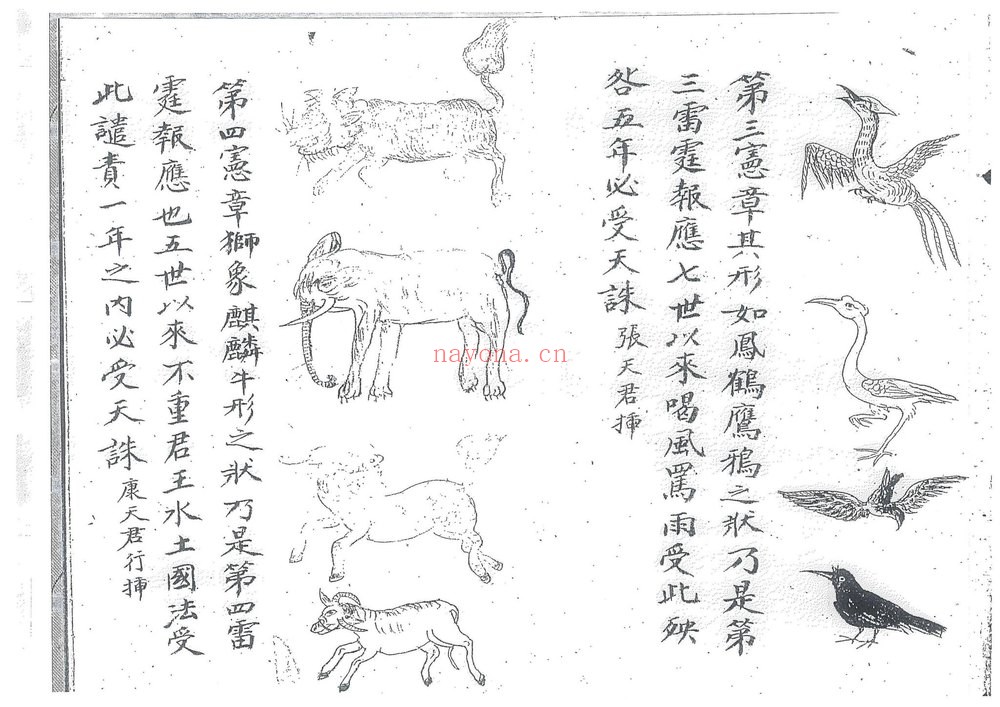 第三憲章其形如鳳鶴鷹鴉之狀乃是第
三雷霆報應七世以來喝風罵雨受此殃
咎五年必受天誅張天君挿
第四憲章獅象麒麟牛形之狀乃是第四雷
霆報應也五世以來不重君王水土國法受
此譴責一年之內必受天誅康天君行挿
nayona.cn